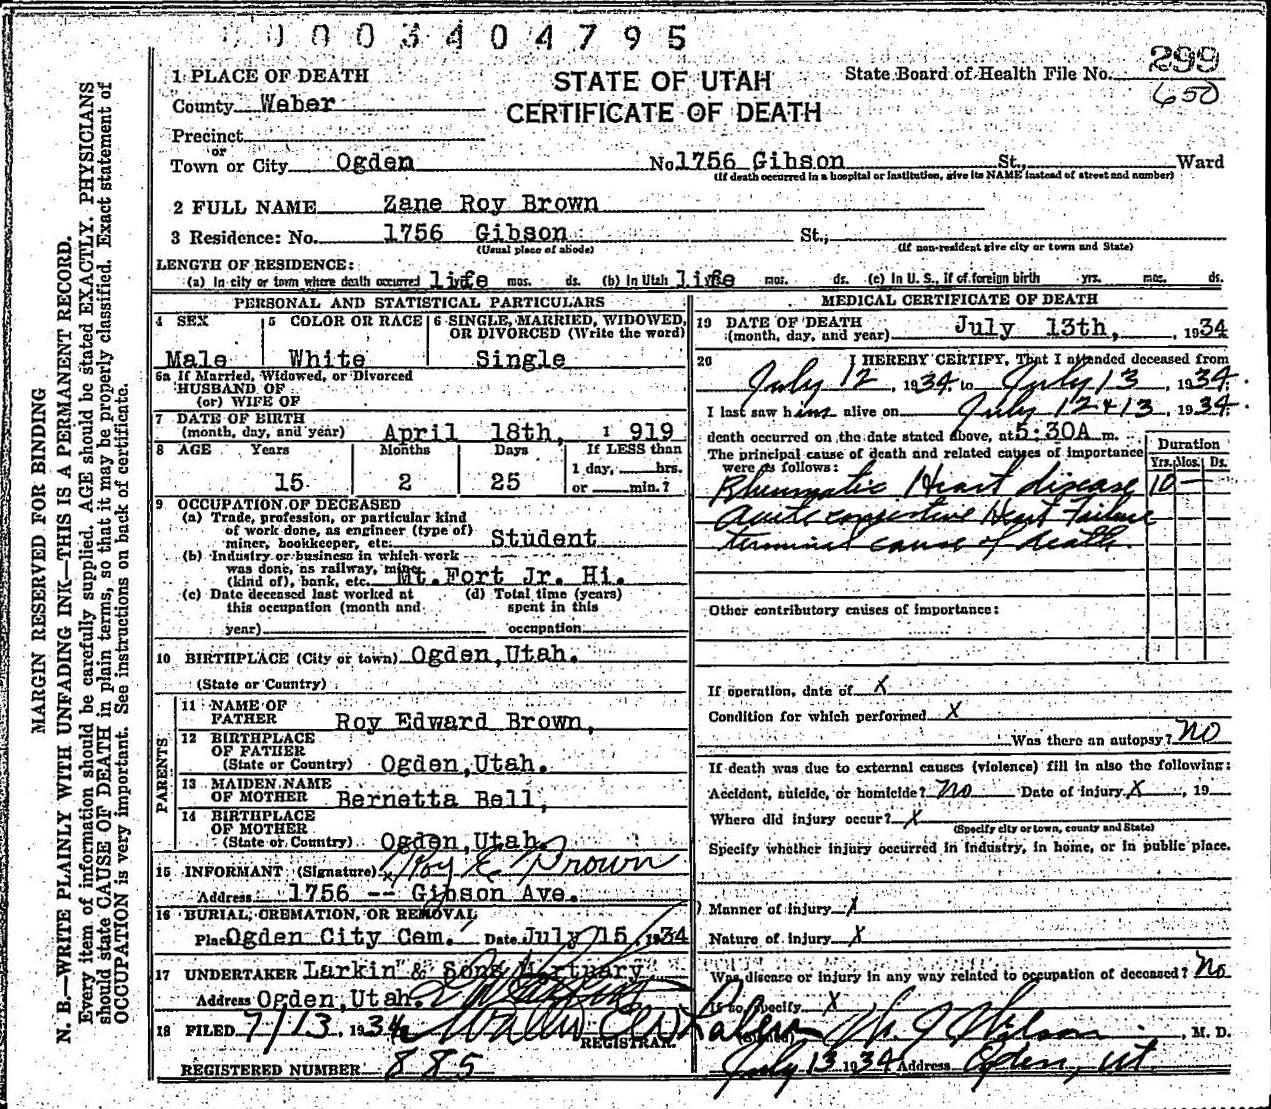 0003404795
299
650
STATE OF UTAH
CERTIFICATE OF DEATH
State Board of Health File No.
1 PLACE OF DEATH
County Weber
Precinct
or
Town or City Ogden No 1756 Gibson St., Ward
(If death occurred in a hospital or institution, give its NAME instead of street and number)
2 FULL NAME Zane Roy Brown
3 Residence: No. 1756 Gibson St.,
(Usual place of abode) (If non-resident give city or town and State)
LENGTH OF RESIDENCE:
(a) In city or town where death occurred life mos. ds. (b) In Utah life mos. ds. (c) In U. S., if of foreign birth yrs. mos. ds.
PERSONAL AND STATISTICAL PARTICULARS
4 SEX
Male
5 COLOR OR RACE
White
6 SINGLE, MARRIED, WIDOWED, OR DIVORCED (Write the word)
Single
6a If Married, Widowed, or Divorced
HUSBAND OF
(or) WIFE OF
7 DATE OF BIRTH
(month, day, and year) April 18th, 1 919
8 AGE Years Months Days If LESS than
1 day, hrs.
15 2 25 or min.?
9 OCCUPATION OF DECEASED
(a) Trade, profession, or particular kind
of work done, as engineer (type of)
miner, bookkeeper, etc. Student
(b) Industry or business in which work
was done, as railway, mine
(kind of), bank, etc. Mt.Fort Jr. Hi.
(c) Date deceased last worked at
this occupation (month and
year)
(d) Total time (years)
spent in this
occupation
10 BIRTHPLACE (City or town) Ogden,Utah.
(State or Country)
PARENTS
11 NAME OF
FATHER Roy Edward Brown,
12 BIRTHPLACE
OF FATHER
(State or Country) Ogden,Utah.
13 MAIDEN NAME
OF MOTHER Bernetta Bell,
14 BIRTHPLACE
OF MOTHER
(State or Country) Ogden,Utah.
15 INFORMANT (Signature) x Roy E Brown
Address 1756 -- Gibson Ave.
16 BURIAL, CREMATION, OR REMOVAL
Plac Ogden City Cem. Date July 15, 1934
17 UNDERTAKER Larkin & Sons Mortuary
Address Ogden,Utah.
18 FILED 7/13, 1934
REGISTRAR.
REGISTERED NUMBER 885
MEDICAL CERTIFICATE OF DEATH
19 DATE OF DEATH
(month, day, and year) July 13th, , 1934
20 I HEREBY CERTIFY, That I attended deceased from
July 12, 1934 to July 13, 1934.
I last saw him alive on July 12+13, 1934.
death occurred on the date stated above, at 5:30A m.
The principal cause of death and related causes of importance
were as follows:
Duration
Yrs. Mos. Ds.
Rheumatic Heart disease 10 —
Acute congestive Heart Failure
terminal cause of death.
Other contributory causes of importance:
If operation, date of X
Condition for which performed X
Was there an autopsy? No
If death was due to external causes (violence) fill in also the following:
Accident, suicide, or homicide? No Date of injury X , 19
Where did injury occur? X
(Specify city or town, county and State)
Specify whether injury occurred in industry, in home, or in public place.
Manner of injury X
Nature of injury X
Was disease or injury in any way related to occupation of deceased? No
If so, specify X
(Signed) , M. D.
July 13 1934 Address Ogden, Ut.
MARGIN RESERVED FOR BINDING
N. B.—WRITE PLAINLY WITH UNFADING INK—THIS IS A PERMANENT RECORD.
Every item of information should be carefully supplied. AGE should be stated EXACTLY. PHYSICIANS
should state CAUSE OF DEATH in plain terms, so that it may be properly classified. Exact statement of
OCCUPATION is very important. See instructions on back of certificate.